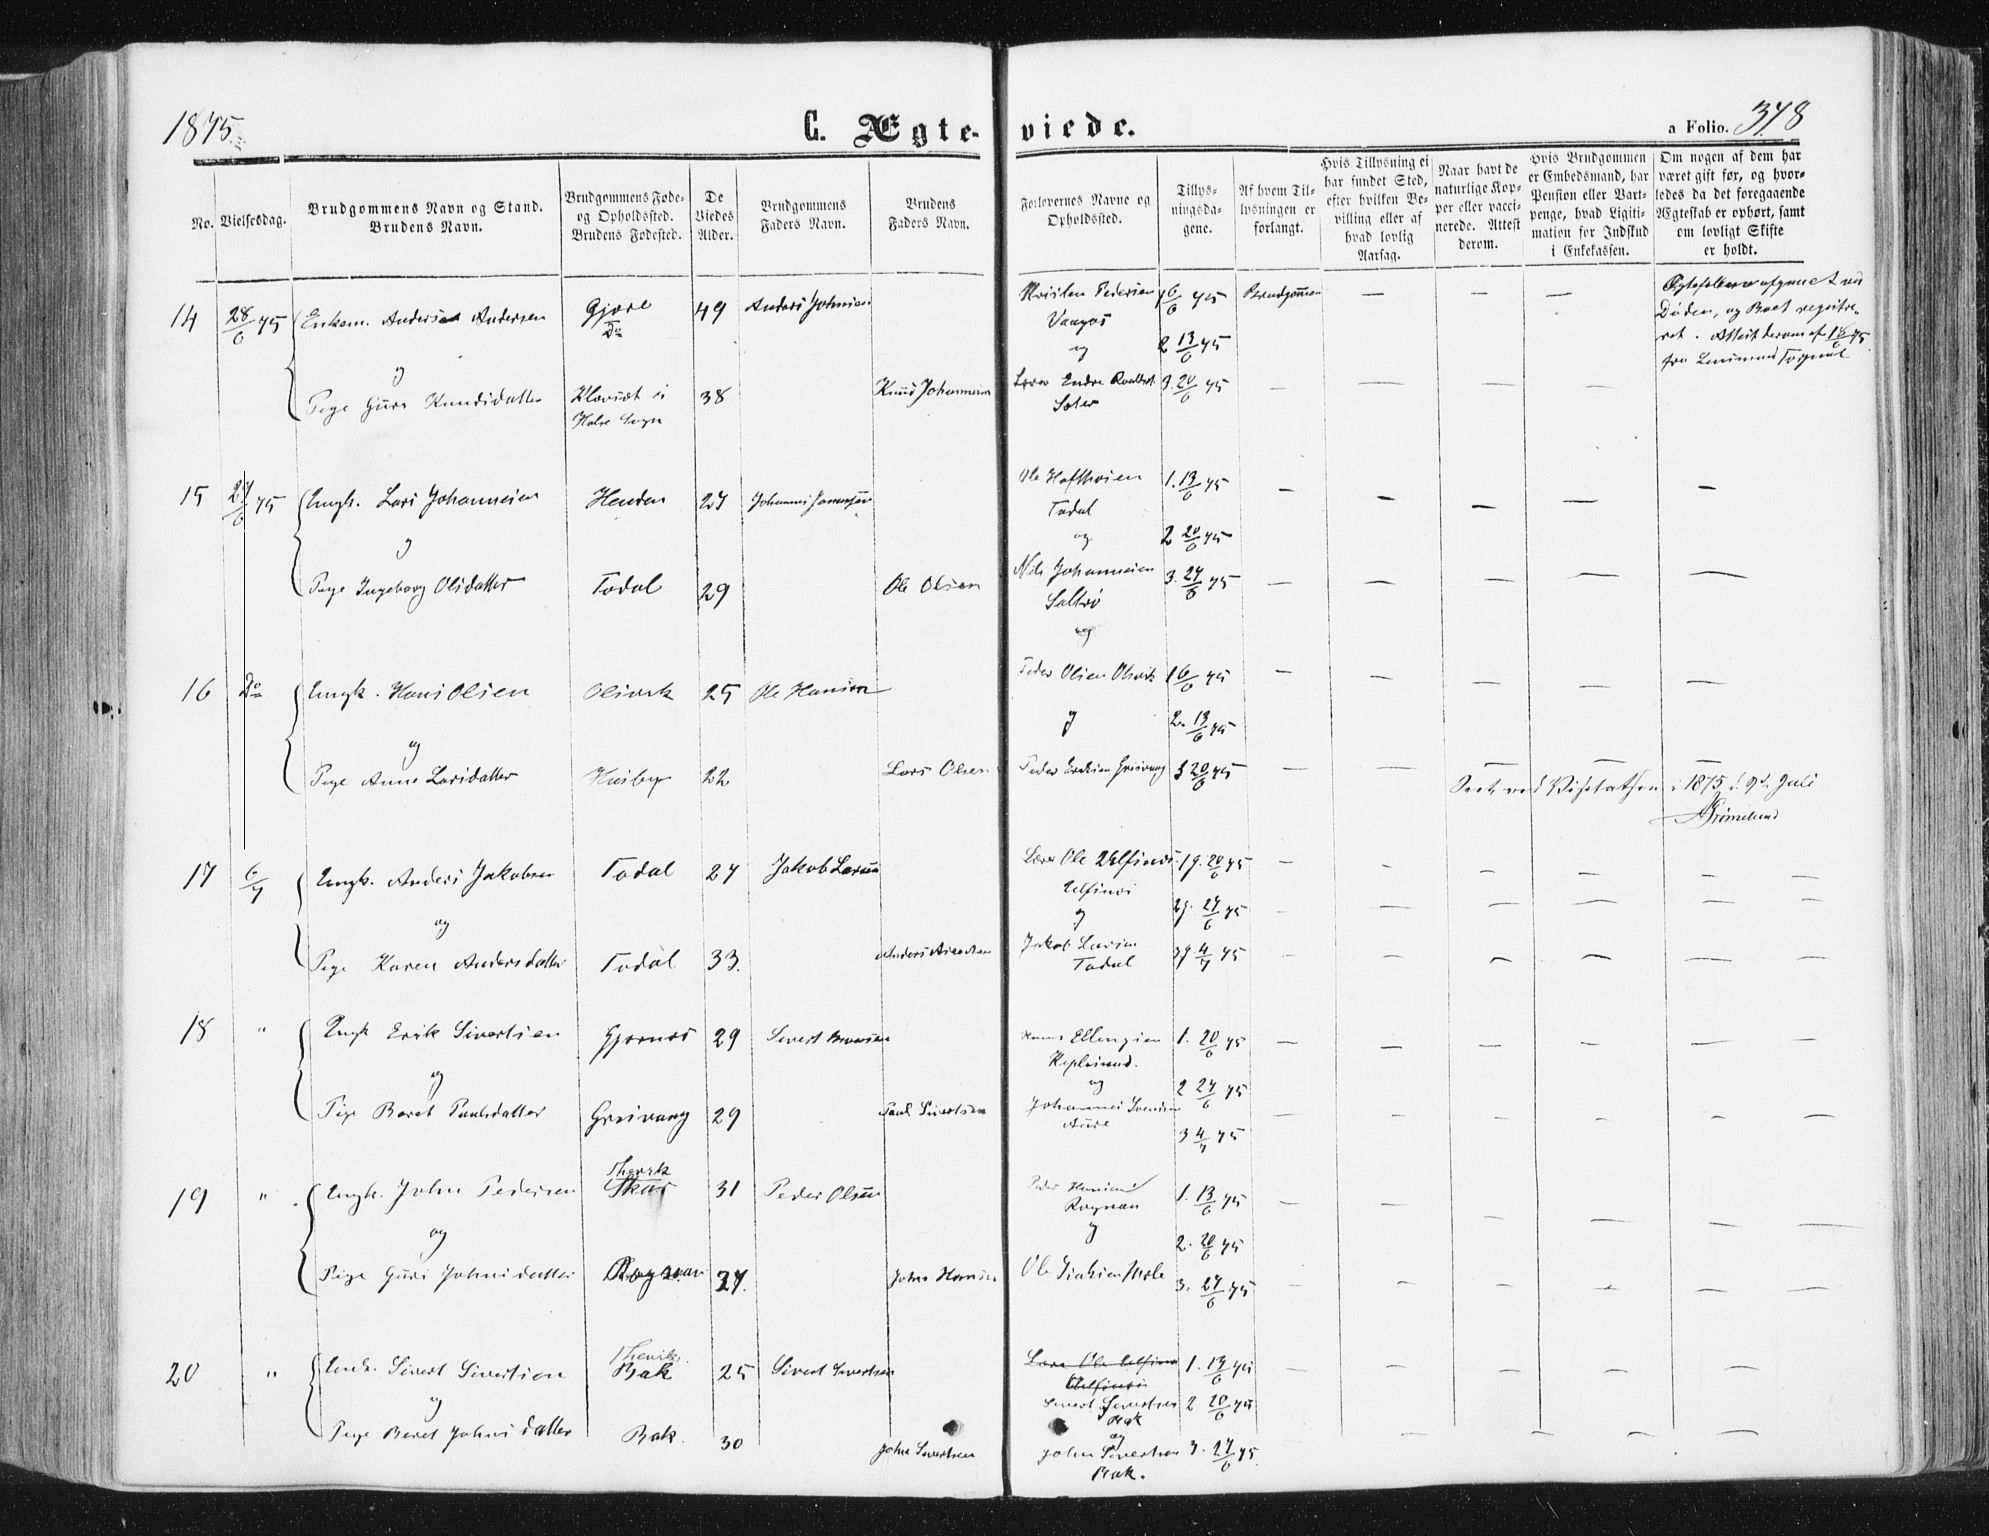 1875.
C. Ægte-
viede.
a Folio. 378
No.
Vielsesdag.
Brudgommens Navn og Stand.
Brudens Navn.
Brudgommens Føde-
og Opholdssted.
Brudens Fødested.
De
Viedes
Alder.
Brudgommens
Faders Navn.
Brudens
Faders Navn.
Forlovernes Navne og
Opholdssted.
Tillys-
ningsda-
gene.
Af hvem Til-
lysningen er
forlangt.
Hvis Tillysning ei
har fundet Sted,
efter hvilken Be-
villing eller af
hvad lovlig
Aarsag.
Naar havt de
naturlige Kop-
per eller vacci-
nerede. Attest
derom.
Hvis Brudgommen
er Embedsmand, har
Pension eller Vart-
penge, hvad Ligiti-
mation for Indskud
i Enkekassen.
Om nogen af dem har
været gift før, og hvor-
ledes da det foregaaende
Ægteskab er ophørt, samt
om lovligt Skifte
er holdt.
14 28/6 75 Enkem. Anders Andersen Gjøre 49 Anders Johnsen Kristen Pedersen 1 6/6 75 Brudgommen — — —
Do Vaagos
og 2 13/6 75
Døden, og Boet registre-
ret. Attest derom af 18/6 75
fra Lensmand
og
Pige Guro Knudsdatter 38 Knud Johannesen Lærer Endre 3. 20/6 75 — — — —
Halse Sogn Sæter
15 27/6 75 Ungk. Lars Johannesen Henden 27 Johannes Ole 1. 13/6 75 — — — — —
Todal
og og 2 20/6 75
Pige Ingeborg Olsdatter Todal 29 Ole Olsen Nils Johannesen 3. 27/6 75 — — — — —
og
16 Do Ungk. Hans Olsen Olsvik 25 Ole Hansen Peder Olsen Olsvik 1 6/6 75 — — — — —
og og 2. 13/6 75
Pige Anne Larsdatter Husby 22 Lars Olsen Peder Eriksen Greivang 3 20/6 75 — — — — —
Seet ved Visitatsen i 1875 d. 9de Juli
Grimelund
17 6/7 Ungk. Anders Jakobsen Todal 27 Jakob Larsen Lærer Ole Ulfsnes 1 g. 20/6 75 — — — — — —
Ulfsnes
og og 2 g. 27/6 75 — — — — — —
Pige Karen Andersdatter Todal 33. Anders Jakob Larsen 3 g 4/7 75 — — — — — —
Todal
18 " Ungk Erik Sivertsen Gjernes 29 Sivert Hans Ellingsen 1. 20/6 75 — — — — — —
og og 2 27/6 75
Pige Beret Paulsdatter Greivang 29 Paul Sivertsen Johannes Svendsen — — — — — —
Aure 3 4/7 75
Thevik
19 " Ungk. John Pedersen Skar 31 Peder Olsen Peder Hansen 1. 13/6 75 — — — — — —
Rognan
og og 2. 20/6 75
Pige Guri Johnsdatter Rognan 27. John Hansen Ole 3. 27/6 75 — — — — — —
Thevik
20 " Ungk. Sivert Sivertsen Bak 25 Sivert Sivertsen Lærer Ole Ulfsnes 1. 13/6 75 — — — — — —
Ulfsnes
og Sivert Sivertsen 2 20/6 75
Bak
og
Pige Beret Johnsdatter Bak. 30 John Sivertsen John Sivertsen 3. 27/6 75. — — — —
Bak.